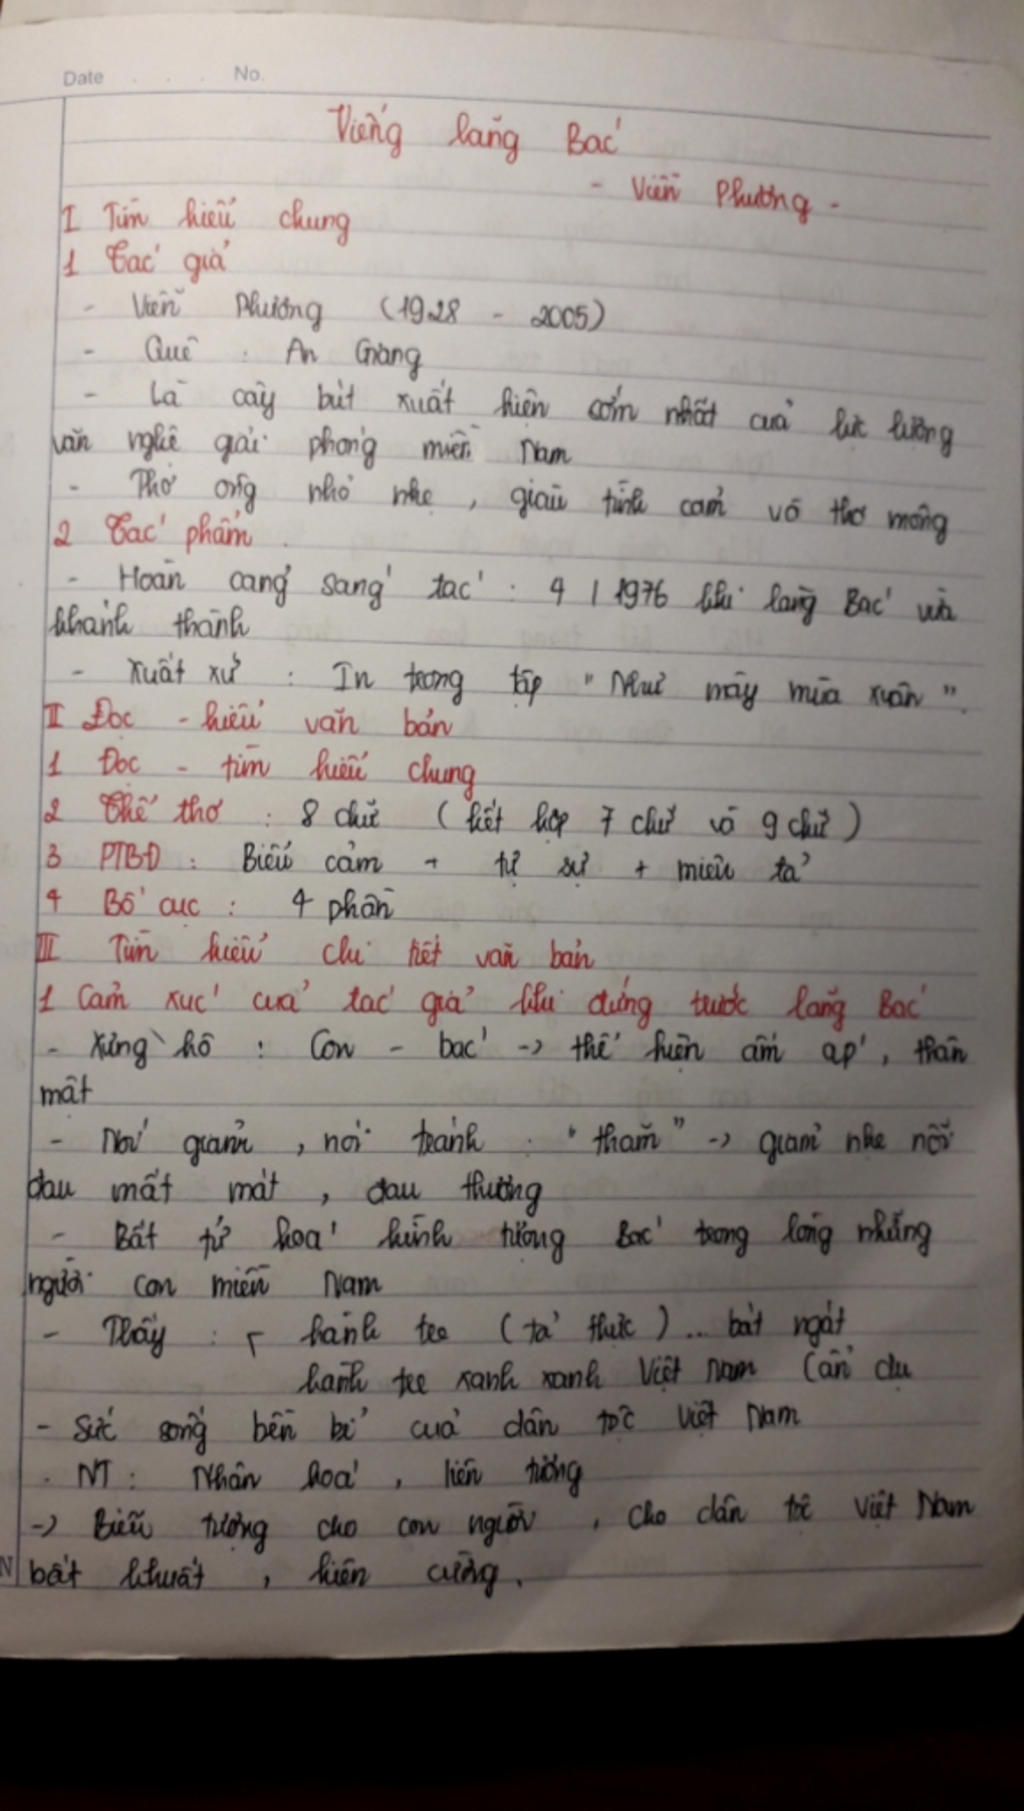 Date . . . No.
Viếng lăng Bác
- Viễn Phương -
I Tìm hiểu chung
1 Tác giả
- Viễn Phương (1928 - 2005)
- Quê : An Giang
- Là cây bút xuất hiện sớm nhất của lực lượng
văn nghệ giải phóng miền Nam
- Thơ ông nhỏ nhẹ , giàu tình cảm và thơ mộng
2 Tác phẩm
- Hoàn cảng sáng tác : 4 / 1976 khi lăng Bác vừa
khánh thành
- Xuất xứ : In trong tập " Như mây mùa xuân ".
II Đọc - hiểu văn bản
1 Đọc - tìm hiểu chung
2 Thể thơ : 8 chữ ( kết hợp 7 chữ và 9 chữ )
3 PTBĐ : Biểu cảm + tự sự + miêu tả
4 Bố cục : 4 phần
III Tìm hiểu chi tiết văn bản
1 Cảm xúc của tác giả khi đứng trước lăng Bác
- Xưng hô : Con - bác -> thể hiện ấm áp , thân
mật
- Nói giảm , nói tránh : " thăm " -> giảm nhẹ nỗi
đau mất mát , đau thương
- Bất tử hoá hình tượng Bác trong lòng những
người con miền Nam
- Thấy : hành tre ( tả thực ) ... bát ngát
hành tre xanh xanh Việt Nam ( ẩn dụ
- Sức sống bền bỉ của dân tộc Việt Nam
. NT : Nhân hoá , liên tưởng
-> Biểu tượng cho con người , cho dân tộc Việt Nam
bất khuất , kiên cường .